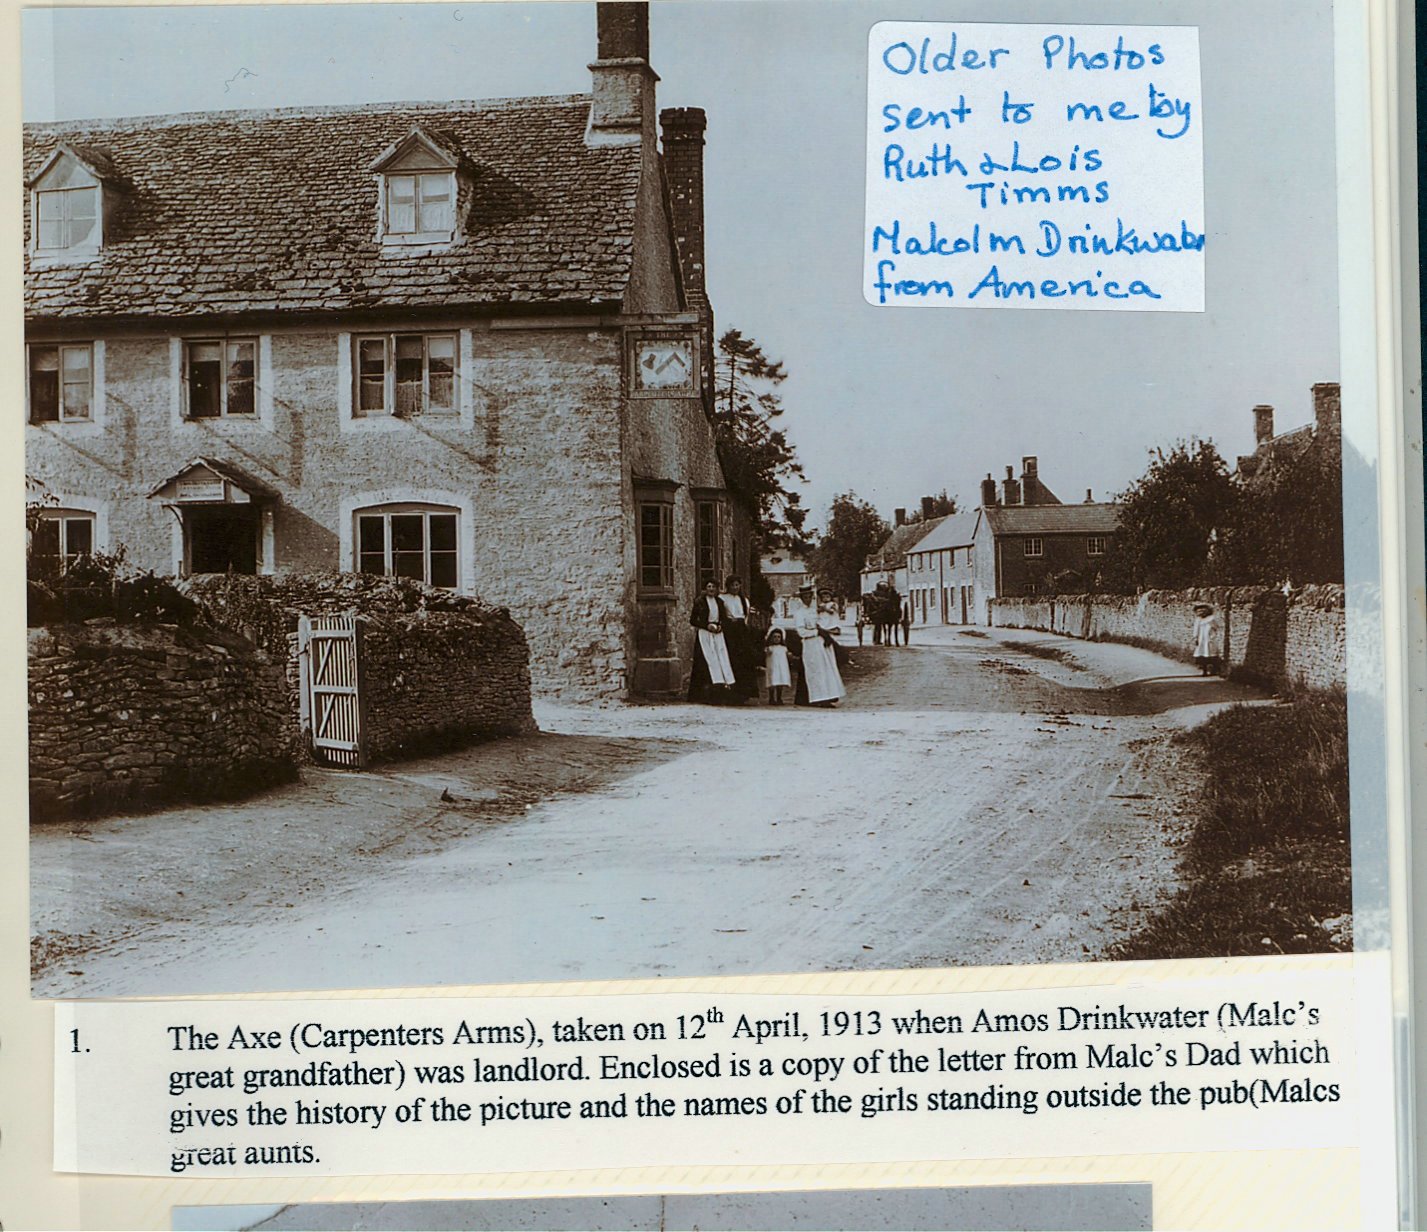 Older Photos
sent to me by
Ruth & Lois
Timms
Malcolm Drinkwater
from America
THE
1. The Axe (Carpenters Arms), taken on 12th April, 1913 when Amos Drinkwater (Malc's
great grandfather) was landlord. Enclosed is a copy of the letter from Malc's Dad which
gives the history of the picture and the names of the girls standing outside the pub(Malcs
great aunts.